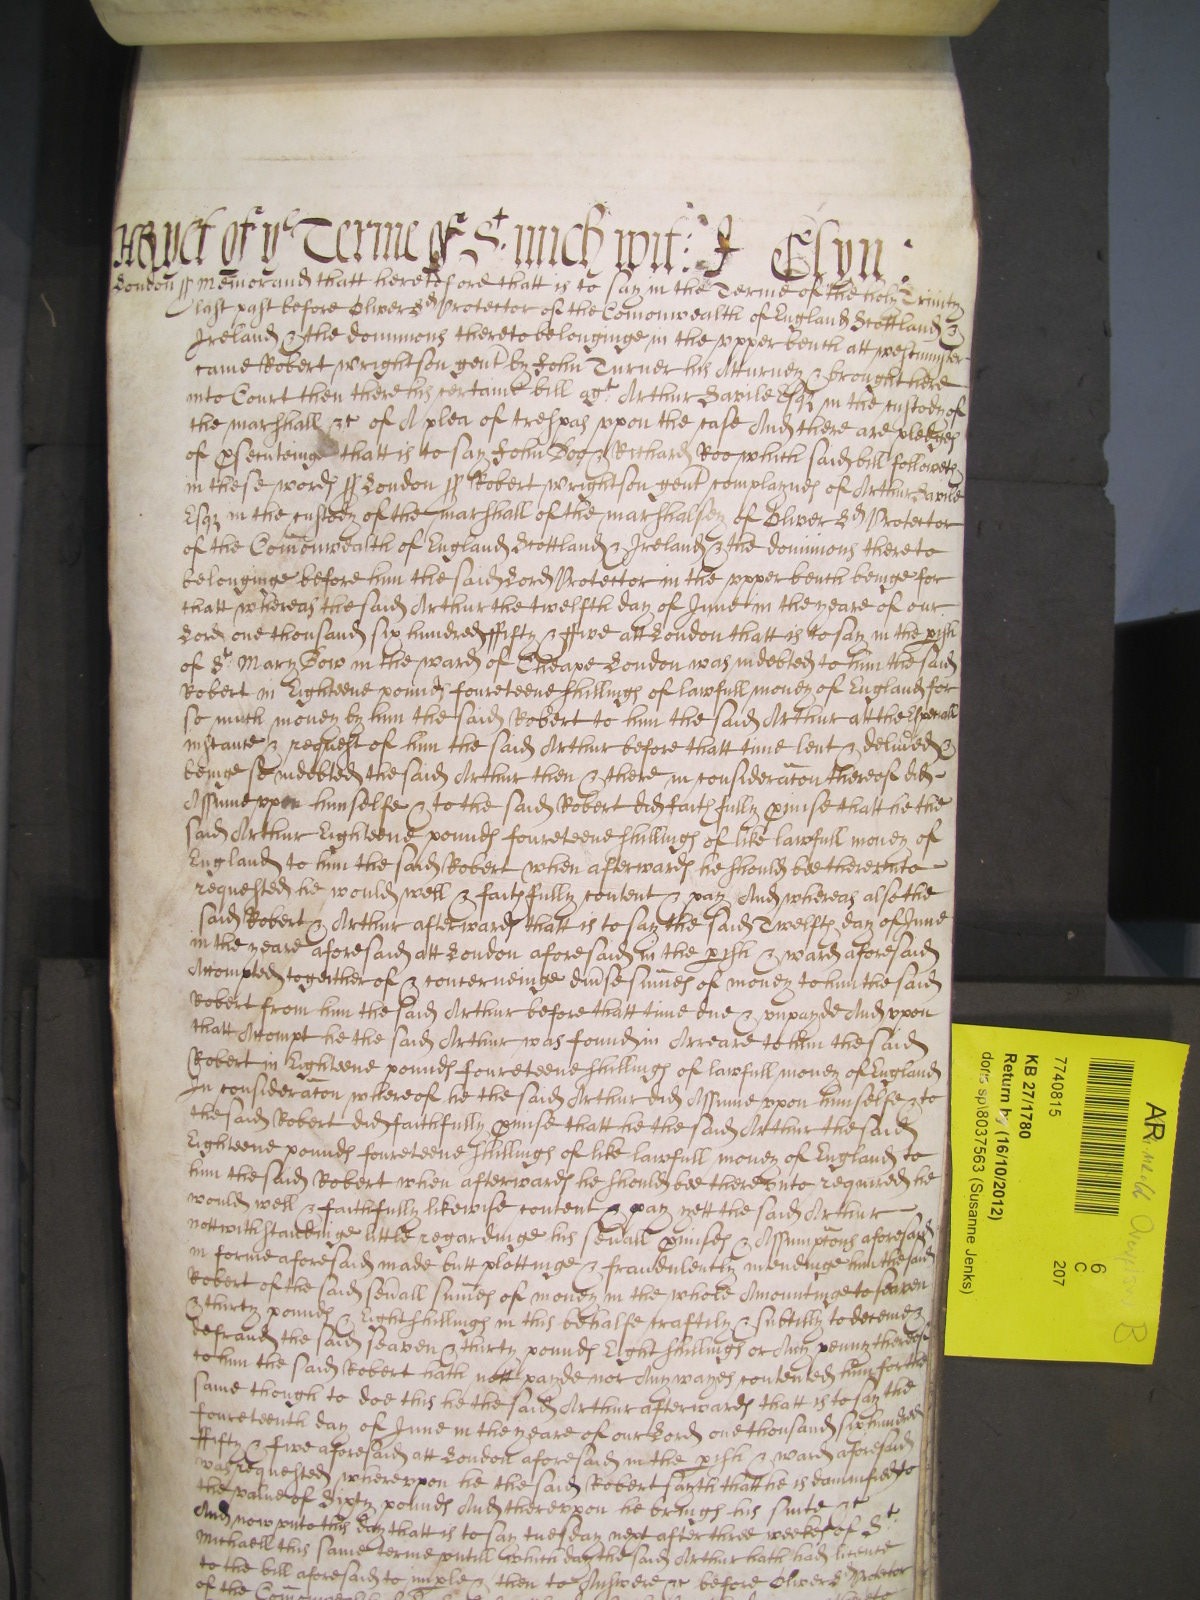 yet of ye Terme of St. Mich wit: J Elyn:
London ss Memorand thatt heretofore thatt is to say in the Terme of the holy Trinity
last past before Oliver Ld Protector of the Comonwealth of England Scottland &
Ireland & the dominions thereto belonginge in the upper bench att westminster
came Robert Wrightson gent by John Turner his Atturney & brought here
into Court then there his certaine bill agt. Arthur Savile Esqr in the custody of
the marshall &c of A plea of trespas uppon the case And there are pledges
of psecuteinge thatt is to say John Doo & Richard Roo which said bill followeth
in these words ss London ss Robert Wrightson gent complaynes of Arthur Savile
Esqr in the custody of the marshall of the marshalsey of Oliver Ld Protector
of the Comonwealth of England Scottland & Ireland & the dominions thereto
belonginge before him the said Lord Protector in the upper bench beinge for
thatt whereas the said Arthur the twelfth day of June in the yeare of our
Lord one thousand six hundred ffifty & ffive att London thatt is to say in the pish
of St. Mary Bow in the ward of Cheape London was indebted to him the said
Robert in Eighteene pounds foureteene shillings of lawfull money of England for
so much money by him the said Robert to him the said Arthur att the Especiall
instance & request of him the said Arthur before thatt time lent & delived &
beinge so indebted the said Arthur then & there in consideracon thereof did
Assume uppon himselfe & to the said Robert did faithfully pmise thatt he the
said Arthur Eighteene pounds foureteene shillings of like lawfull money of
England to him the said Robert when afterwards he should bee thereunto
requested he would well & faithfully content & pay And whereas also the
said Robert & Arthur afterwards thatt is to say the said Twelfth day of June
in the yeare aforesaid att London aforesaid in the pish & ward aforesaid
Accompted togeither of & concerneinge divse sumes of money to him the said
Robert from him the said Arthur before thatt time due & unpayde And uppon
thatt Accompt he the said Arthur was found in Arreare to him the said
Robert in Eighteene pounds foureteene shillings of lawfull money of England
In consideracon whereof he the said Arthur did Assume uppon himselfe & to
the said Robert did faithfully pmise thatt he the said Arthur the said
Eighteene pounds foureteene shillings of like lawfull money of England to
him the said Robert when afterwards he should bee thereunto required he
would well & faithfully likewise content & pay yett the said Arthur
nottwithstandinge little regardinge his sevall pmises & Assumptons aforesaid
in forme aforesaid made butt plottinge & fraudulently intendinge him the said
Robert of the said sevall sumes of money in the whole Amountinge to seaven
& thirty pounds & Eight shillings in this behalfe craftily & subtilly to deceive &
defraud the said seaven & thirty pounds Eight shillings or Any penny thereof
to him the said Robert hath nott payde nor Any wayes contented him for the
same though to doe this he the said Arthur afterwards thatt is to say the
foureteenth day of June in the yeare of our Lord one thousand six hundred
ffifty & five aforesaid att London aforesaid in the pish & ward aforesaid
was requested whereuppon he the said Robert sayth thatt he is damnified to
the value of Sixty pounds And thereuppon he brings his suite &c
And now unto this day thatt is to say tuesday next after three weekes of St.
Michaell this same terme untill which day the said Arthur hath had licence
to the bill aforesaid to imple & then to Answere &c before Oliver Ld Protector
of the Comonwealth of
AR
7740815
6
C
207
KB 27/1780
Return by (16/10/2012)
dors sp\8037563 (Susanne Jenks)